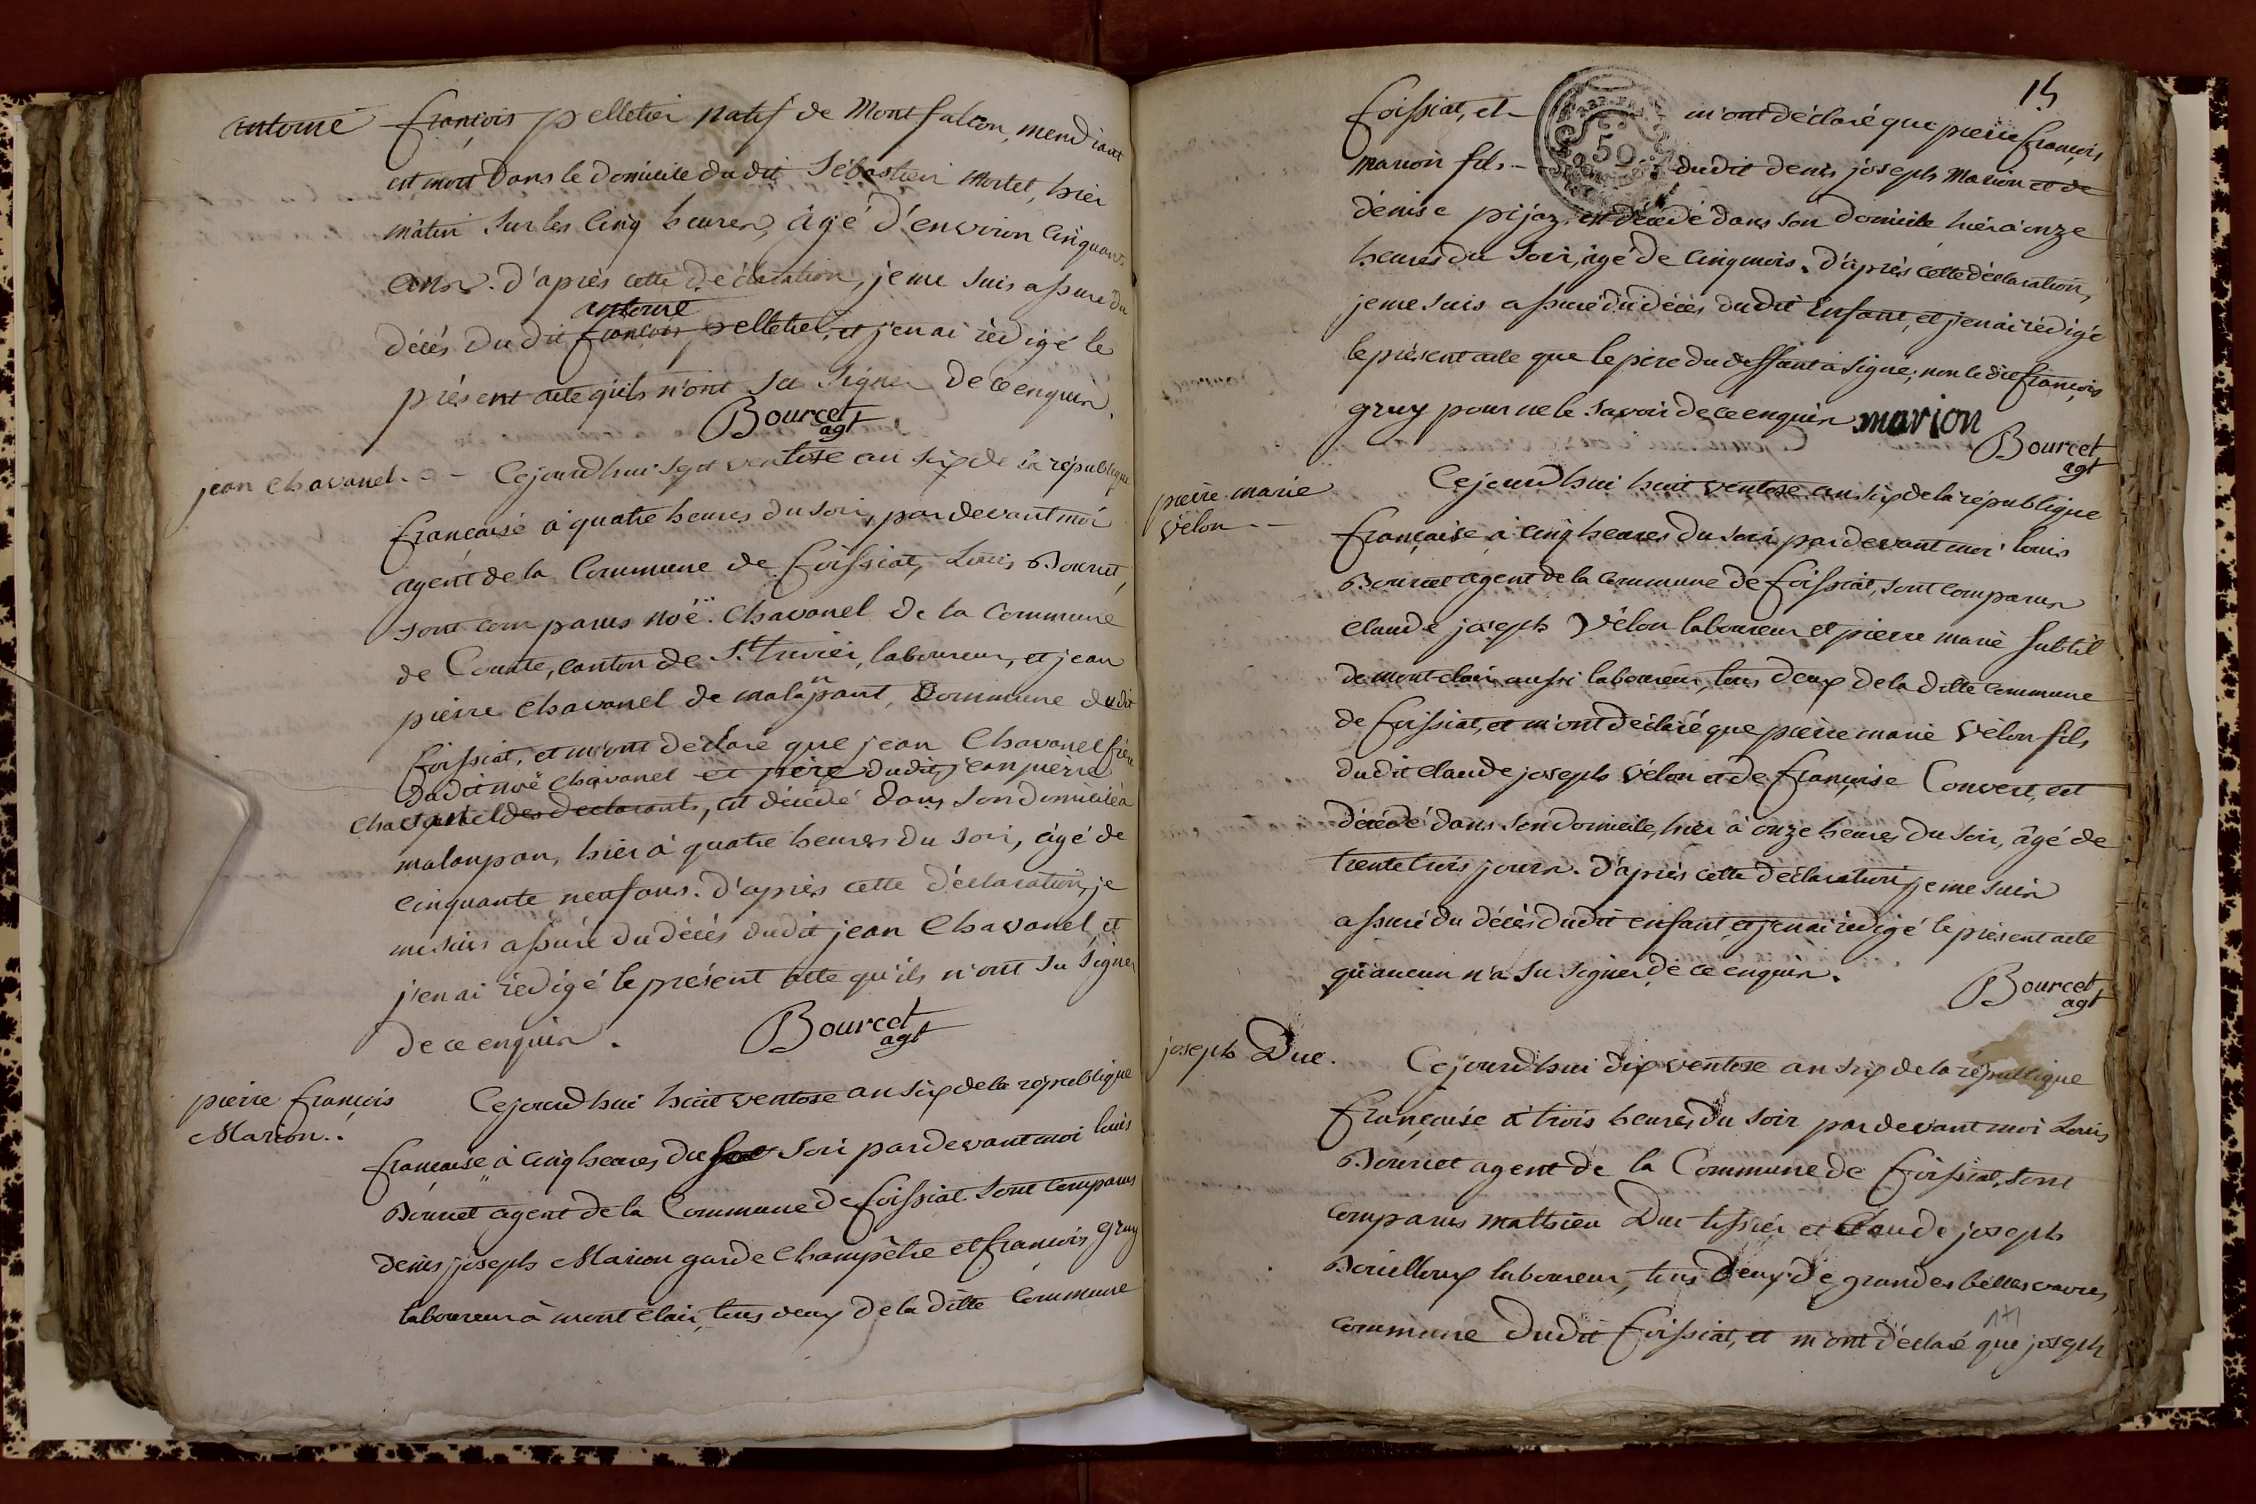 antoine françois pelletier natif de Montfalcon, mendiant
est mort dans le domicile dudit Sébastien Mortel, hier
matin sur les cinq heures, âgé d'environ cinquante
ans. d'après cette déclaration, je me suis assuré du
antoine
décès dudit françois pelletier, et j'en ai rédigé le
présent acte qu'ils n'ont su signer de ce enquis.
Bourcet
agt
jean chavanel. - Cejourdhui sept ventose an six de la république
française à quatre heures du soir, pardevant moi
agent de la Commune de foissiat, Louis Bourcet,
sont comparus noë chavanel de la Commune
de Courte, canton de St. trivier, laboureur, et jean
pierre chavanel de malanpant, Commune dudit
foissiat, et m'ont déclaré que jean Chavanel frère
dudit noë chavanel et père dudit jean pierre
chavanel des declarants, est décédé dans son domicile à
malanpan, hier à quatre heures du soir, âgé de
cinquante neuf ans. d'après cette déclaration, je
me suis assuré du décès dudit jean Chavanel, et
j'en ai rédigé le présent acte qu'ils n'ont su signer
de ce enquis.
Bourcet
agt
pierre françois
Marion.
Cejourdhui huit ventose an six de la république
française à cinq heures du soir pardevant moi louis
Bourcet agent de la Commune de foissiat sont comparus
denis joseph Marion garde champêtre et françois gruy
laboureur à mont clair, tous deux de la ditte Commune
15
foissiat, et m'ont déclaré que pierre françois
marion fils dudit denis joseph Marion et de
50
dénise pijaz, est décédé dans son domicile hier à onze
heures du soir, âgé de cinq mois. d'après cette déclaration,
je me suis assuré du décès dudit enfant, et j'en ai rédigé
le présent acte que le père du deffant a signé, non ledit françois
gruy pour ne le savoir de ce enquis marion
Bourcet
agt
pierre marie
vélon
Cejourdhui huit ventose an six de la république
française à cinq heures du soir pardevant moi louis
Bourcet agent de la commune de foissiat, sont comparus
claude joseph Vélon laboureur et pierre marie subtil
de mont clair aussi laboureur, tous deux de la ditte commune
de foissiat, et m'ont déclaré que pierre marie vélon fils
dudit claude joseph vélon et de françoise Convert, est
décédé dans son domicile, hier à onze heures du soir, âgé de
trente trois jours. d'après cette déclaration je me suis
assuré du décès dudit enfant, et j'en ai rédigé le présent acte
qu'aucun n'a su signer de ce enquis.
Bourcet
agt
joseph Duc.
Cejourdhui dix ventose an six de la république
française à trois heures du soir pardevant moi Louis
Bourcet agent de la Commune de foissiat, sont
comparus mathieu Duc tissier et Claude joseph
Bouilloux laboureur, tous deux de grandes bellesvavres,
commune dudit foissiat, et m'ont déclaré que joseph